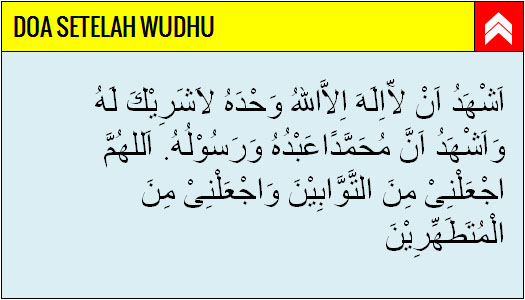 DOA SETELAH WUDHU
اَشْهَدُ اَنْ لآّاِلَهَ اِلاَّاللهُ وَحْدَهُ لاَشَرِيْكَ لَهُ
وَاَشْهَدُ اَنَّ مُحَمَّدًاعَبْدُهُ وَرَسُوْلُهُ. اَللهُمَّ
اجْعَلْنِىْ مِنَ التَّوَّابِيْنَ وَاجْعَلْنِىْ مِنَ
الْمُتَطَهِّرِيْنَ